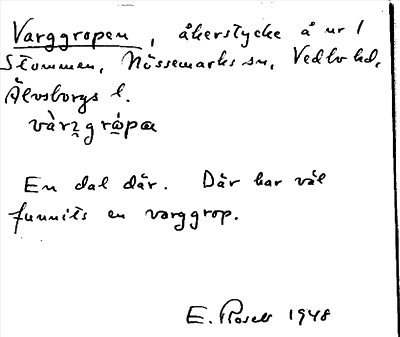 Varggropen, åkerstycke å nr 1
Stommen, Nössemarks sn, Vedbo hd,
Älvsborgs l.
En dal där. Där har väl
funnits en varggrop.
E. Rosell 1948